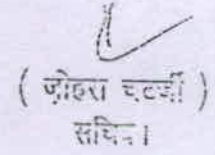 ( ज़ोहरा चटर्जी )
सचिव।